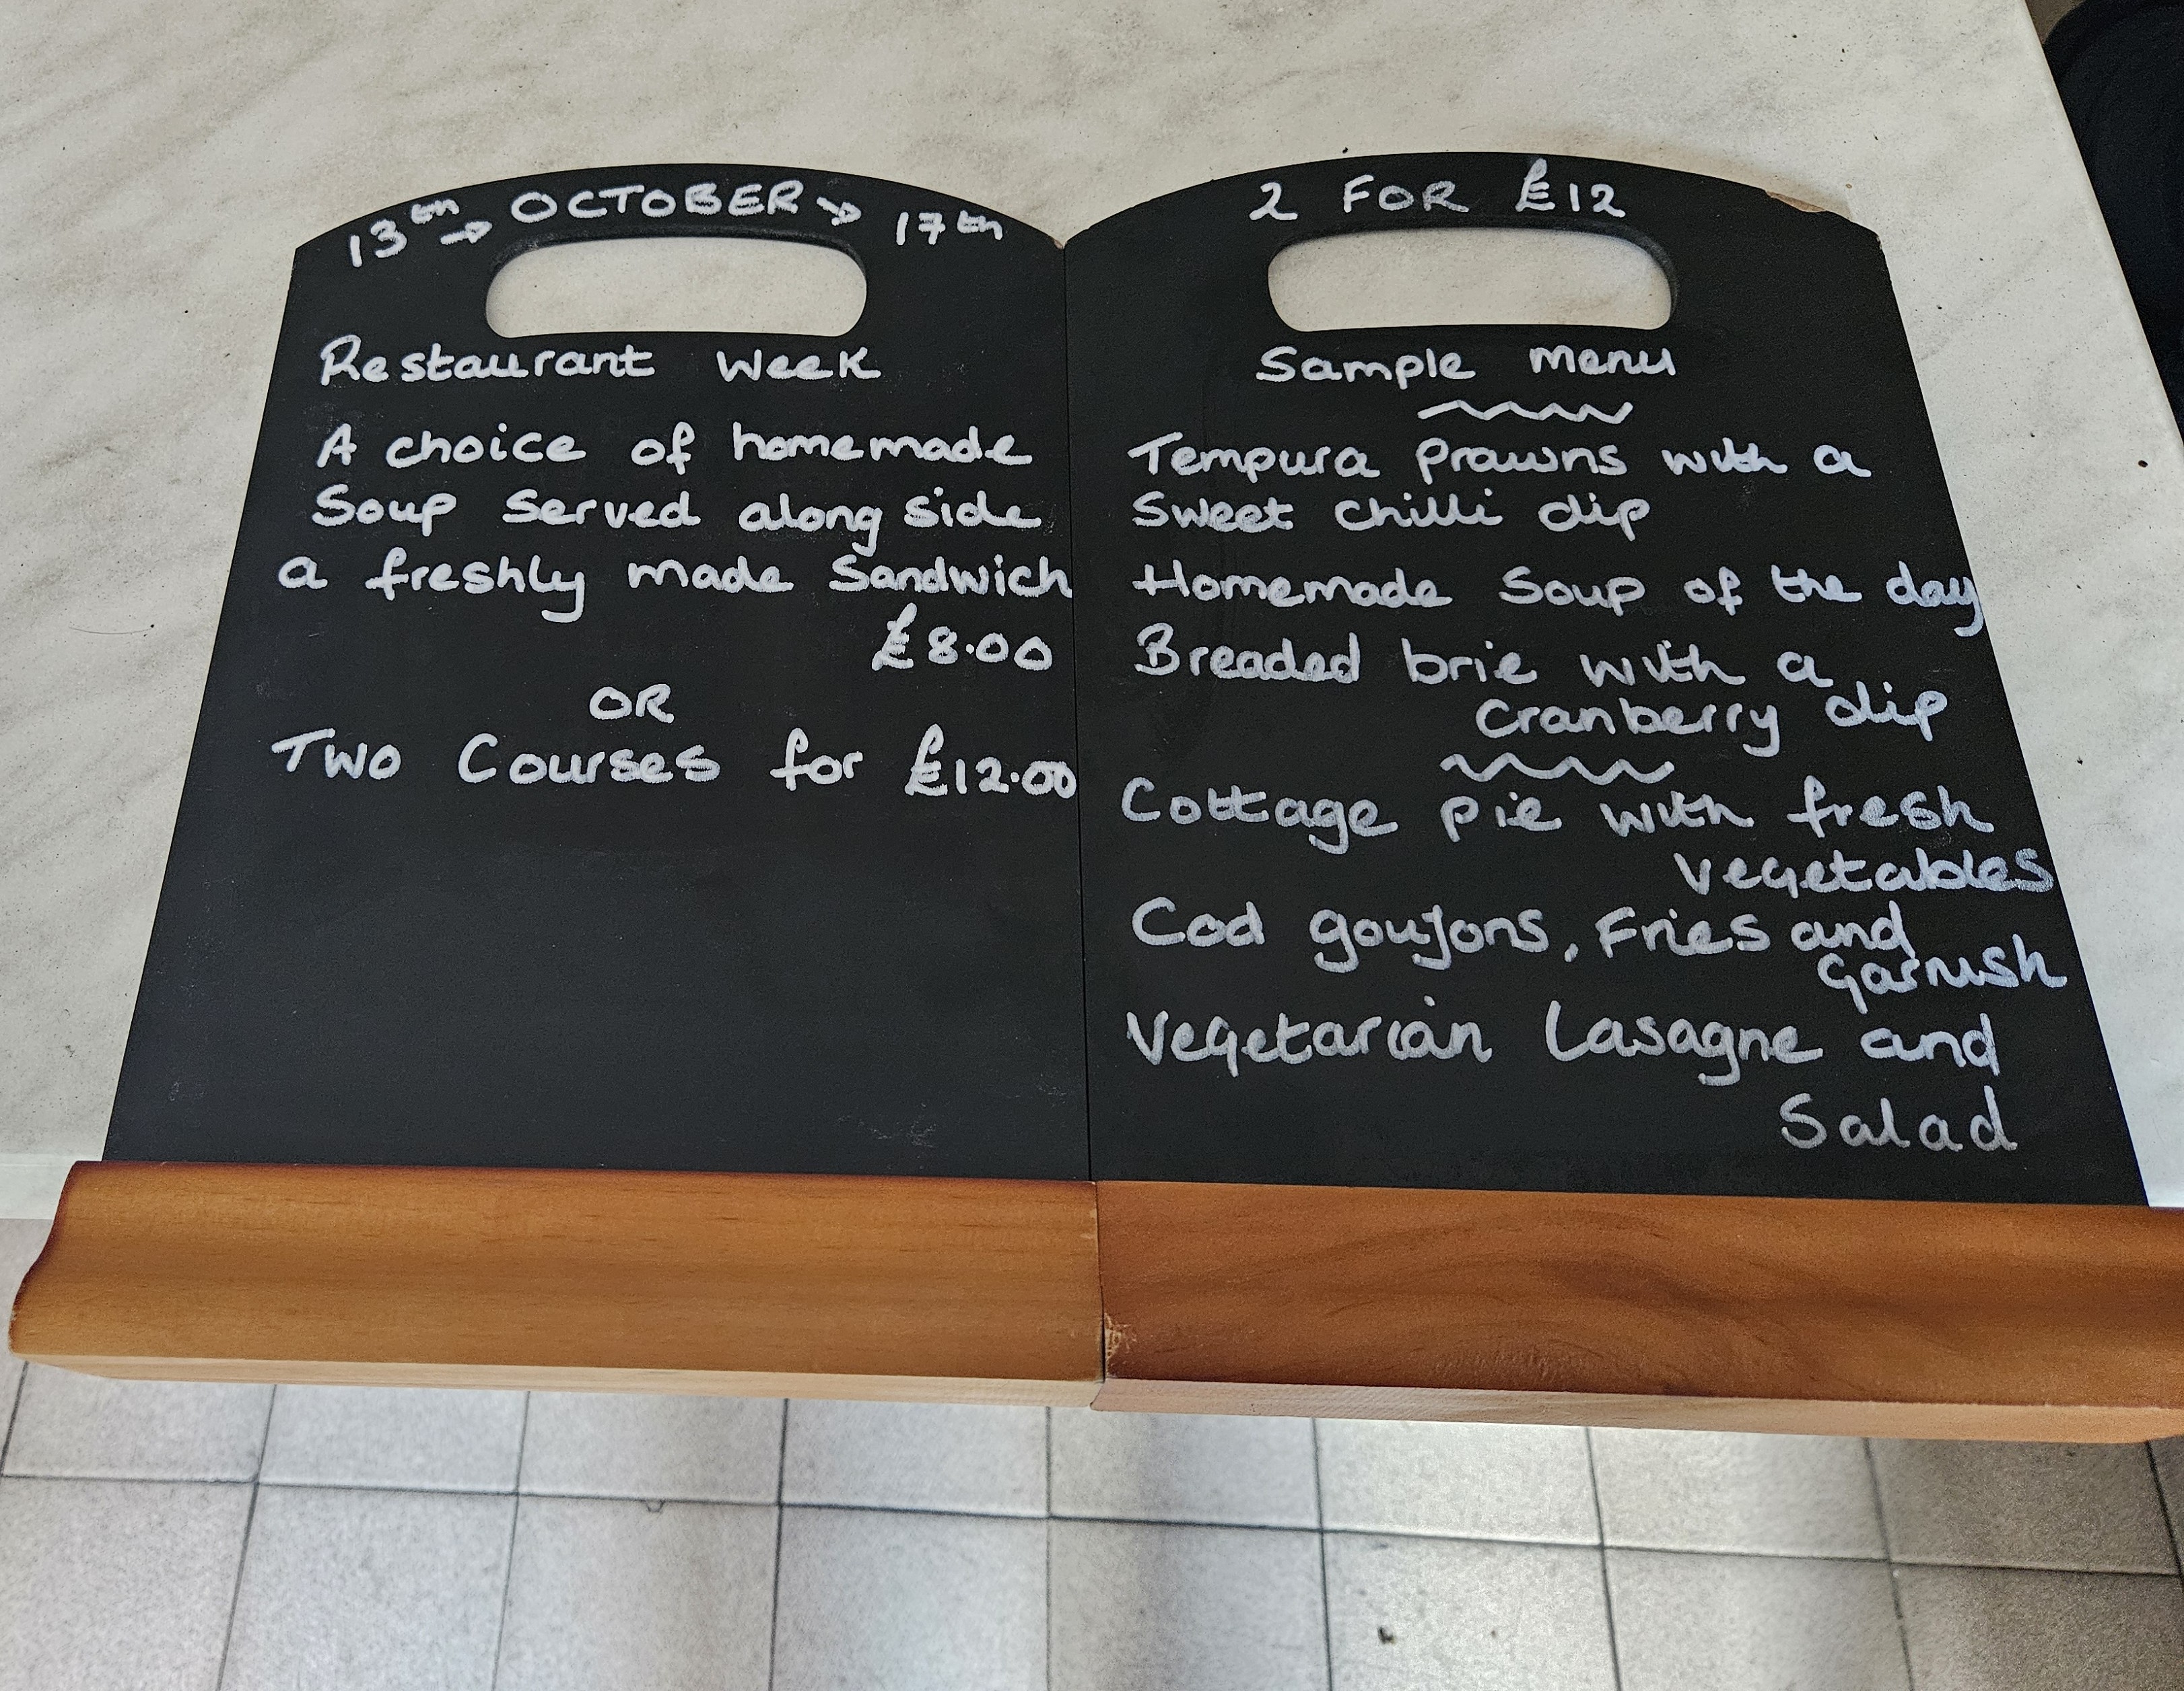 13th → OCTOBER → 17th
Restaurant Week
A choice of homemade
Soup Served along side
a freshly made Sandwich
£8.00
OR
Two Courses for £12.00
2 FOR £12
Sample Menu
Tempura Prawns with a
Sweet Chilli dip
Homemade Soup of the day
Breaded brie with a
Cranberry dip
Cottage pie with fresh
Vegetables
Cod goujons, Fries and
Garnish
Vegetarian Lasagne and
Salad